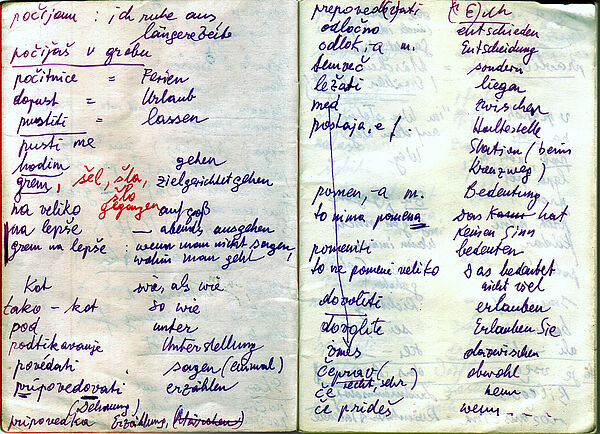 počijam : ich ruhe aus,
längere Zeite
počijaš v grobu
počitnice = Ferien
dopust = Urlaub
pustiti = lassen
pusti me
hodim gehen
grem, šel, šla, zielgerichtet gehen
šlo
gegangen
na veliko auf groß
na lepše — abends ausgehen
grem na lepše : wenn man nicht sagen,
wohin man geht
Kot wie, als wie
tako – kot so wie
pod unter
podtikavanje Unterstellung
povédati sagen (einmal)
pripovedovati erzählen
(Dehnung)
pripovedka Erzählung, (Märchen)
prepoved(ij)ati
odločno entschieden
odlok, -a m. Entscheidung
temveč sondern
ležati liegen
med zwischen
postaja, e f. Haltestelle
Station (beim
Kreuzweg)
pomen, -a m. Bedeutung
to nima pomena Das hat
keinen Sinn
pomeniti bedeuten
to ne pomeni veliko Das bedeutet
nicht viel
dovoliti erlauben
dovolite Erlauben Sie
vmes dazwischen
čeprav obwohl
(recht, sehr)
če wenn
če prideš wenn ....